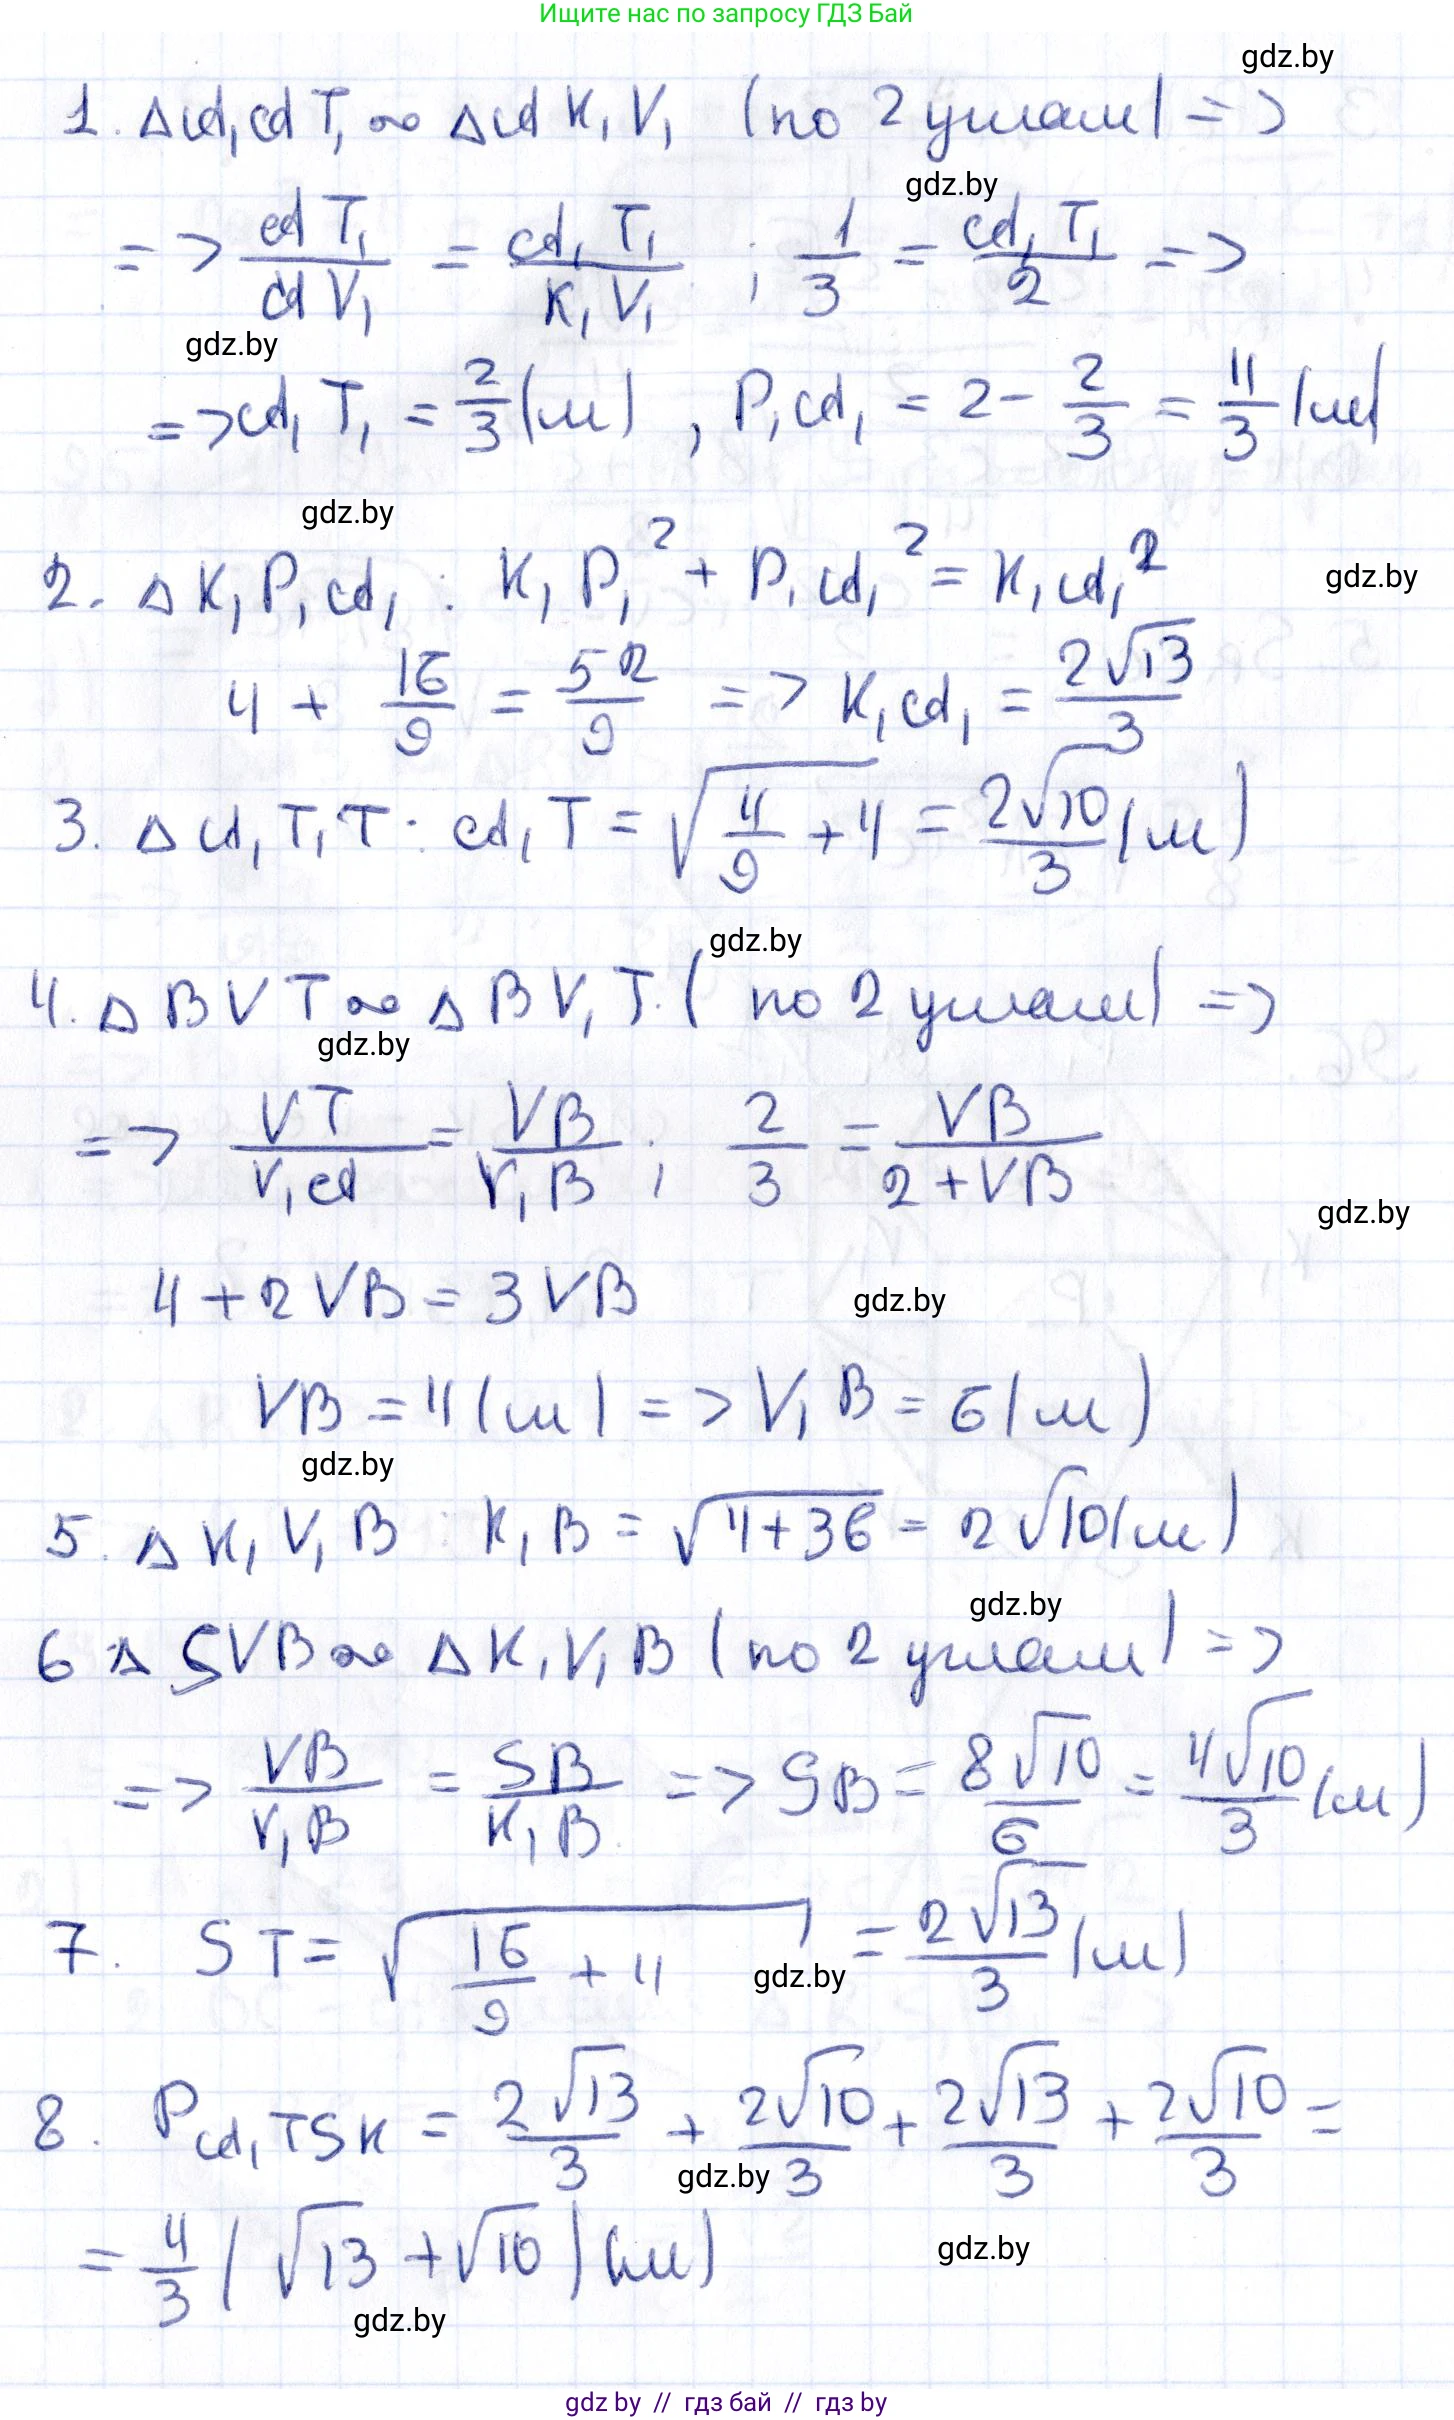 Ищите нас по запросу ГДЗ Бай
gdz.by
1. Δ𝒸d₁cdT₁ ∾ ΔcdK₁V₁ (по 2 углам) =>
gdz.by
=> cdT₁/cdV₁ = cd₁T₁/K₁V₁ ; 1/3 = cd₁T₁/2 =>
gdz.by
=> cd₁T₁ = 2/3 (м) , P₁cd₁ = 2 - 2/3 = 4/3 (м)
gdz.by
2. ΔK₁P₁cd₁ : K₁P₁² + P₁cd₁² = K₁cd₁²
gdz.by
4 + 16/9 = 52/9 => K₁cd₁ = 2√13/3
3. Δcd₁T₁T : cd₁T = √(4/9 + 4) = 2√10/3 (м)
gdz.by
4. ΔBVT ∾ ΔBV₁T. (по 2 углам) =>
gdz.by
=> VT/V₁cd = VB/V₁B ; 2/3 = VB/(2+VB)
gdz.by
4 + 2VB = 3VB
gdz.by
VB = 4 (м) => V₁B = 6 (м)
gdz.by
5. ΔK₁V₁B : K₁B = √(4+36) = 2√10 (м)
gdz.by
6 ΔSVB ∾ ΔK₁V₁B (по 2 углам) =>
=> VB/V₁B = SB/K₁B => SB = 8√10/6 = 4√10/3 (м)
7. ST = √(16/9 + 4) = 2√13/3 (м)
gdz.by
8. P cd₁TSK = 2√13/3 + 2√10/3 + 2√13/3 + 2√10/3 =
gdz.by
= 4/3 (√13 + √10) (м)
gdz.by
gdz.by
gdz by // гдз бай // гдз by